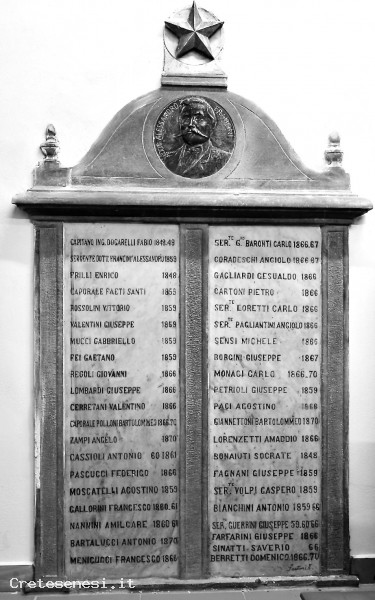 ALESSANDRO FRANCINI
CAPITANO ING. BOCARELLI FABIO 1848.49
SERGENTE DOTT. FRANCINI ALESSANDRO 1859
FRILLI ENRICO 1848
CAPORALE FAETI SANTI 1859
ROSSOLINI VITTORIO 1859
VALENTINI GIUSEPPE 1859
MUCCI GABBRIELLO 1859
FEI GAETANO 1859
REGOLI GIOVANNI 1866
LOMBARDI GIUSEPPE 1866
CERRETANI VALENTINO 1866
CAPORALE POLLONI BARTOLOMMEO 1866.70
ZAMPI ANGELO 1870
CASSIOLI ANTONIO 60 1861
PASCUCCI FEDERIGO 1866
MOSCATELLI AGOSTINO 1859
GALLORINI FRANCESCO 1860.61
NANNINI AMILCARE 1860 61
BARTALUCCI ANTONIO 1870
MENICUCCI FRANCESCO 1866
SER.TE G. BARONTI CARLO 1866.67
CORADESCHI ANGIOLO 1866 67
GAGLIARDI GESUALDO 1866
CARTONI PIETRO 1866
SER.TE LORETTI CARLO 1866
SER.TE PAGLIANTINI ANGIOLO 1866
SENSI MICHELE 1866
BORGINI GIUSEPPE 1867
MONACI CARLO 1866.70
PETRIOLI GIUSEPPE 1859
PACI AGOSTINO 1868
GIANNETTONI BARTOLOMMEO 1870
LORENZETTI AMADDIO 1866
BONAIUTI SOCRATE 1848
FAGNANI GIUSEPPE 1859
SER.TE VOLPI CASPERO 1859
BIANCHINI ANTONIO 1859 66
SER. GUERRINI GIUSEPPE 59.60 66
FARFARINI GIUSEPPE 1866
SINATTI SAVERIO 66
BERRETTI DOMENICO 1866.70
Cretesenesi.it